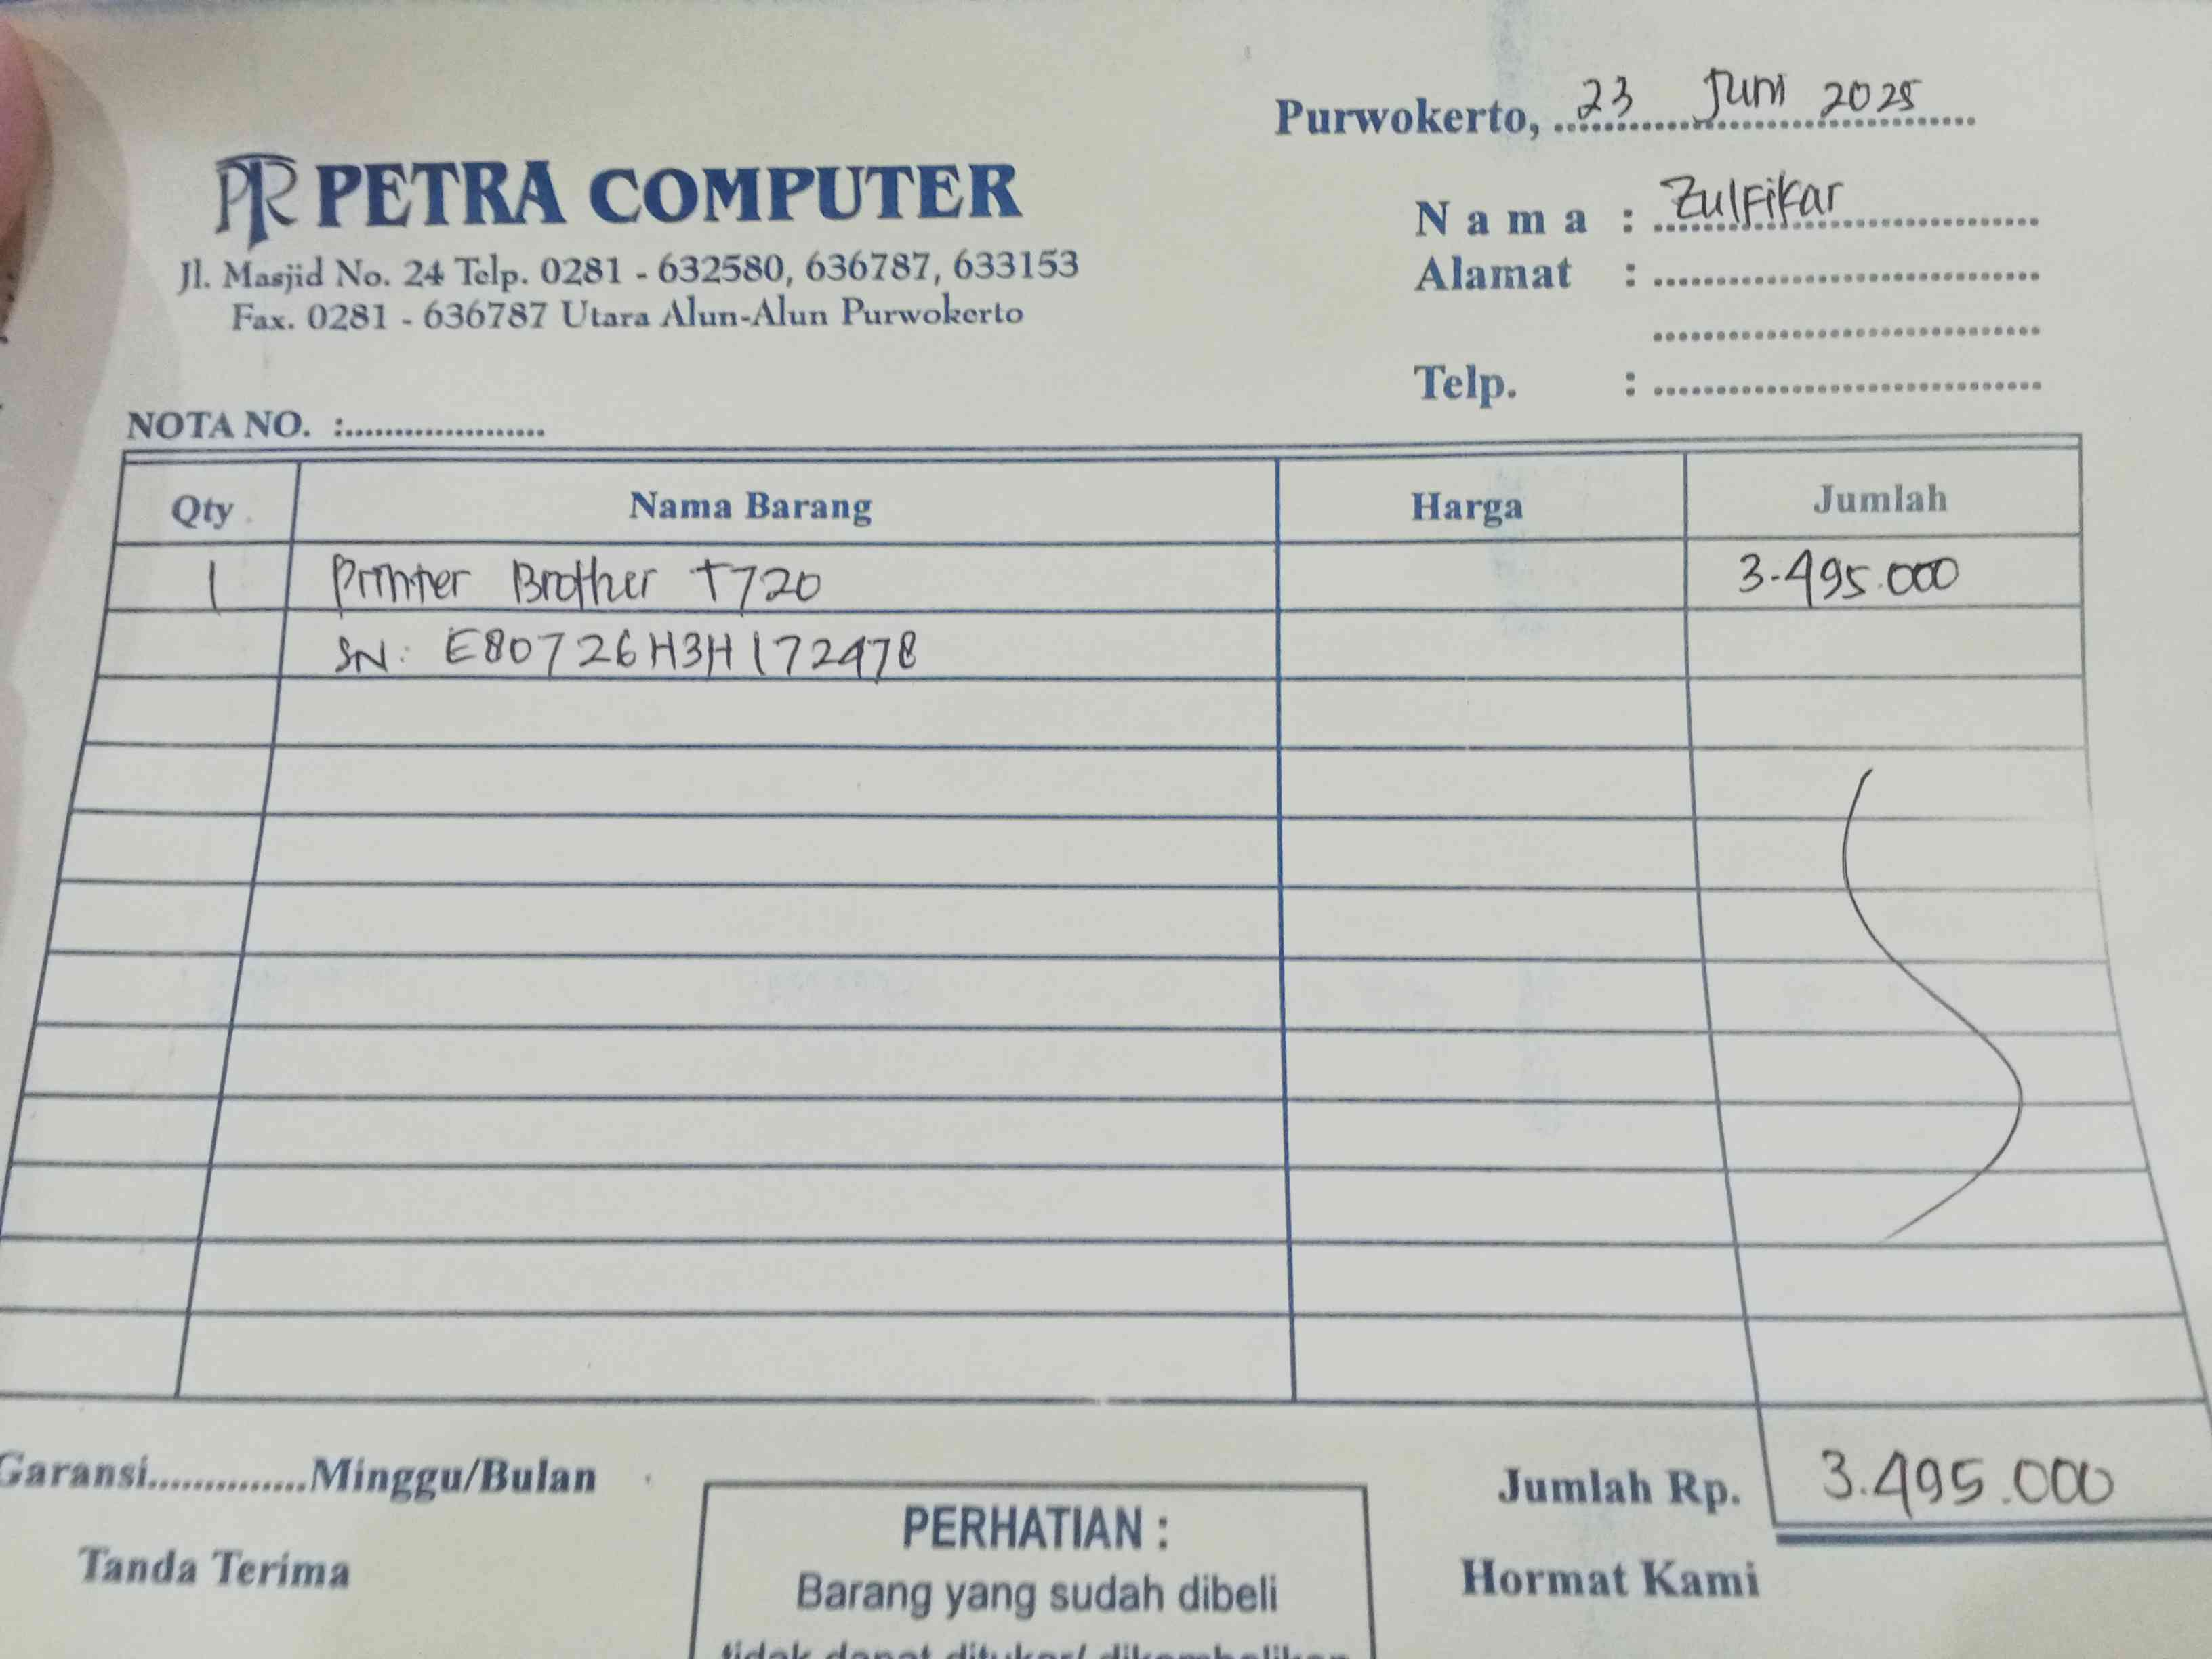 Purwokerto, 23 Juni 2025
PETRA COMPUTER
Jl. Masjid No. 24 Telp. 0281 - 632580, 636787, 633153
Fax. 0281 - 636787 Utara Alun-Alun Purwokerto
Nama : Zulfikar
Alamat :
Telp. :
NOTA NO. :
Qty Nama Barang Harga Jumlah
1 Printer Brother T720 3.495.000
SN: E80726H3H172478
Garansi..............Minggu/Bulan
Jumlah Rp. 3.495.000
Tanda Terima
PERHATIAN :
Barang yang sudah dibeli
tidak dapat ditukar/ dikembalikan
Hormat Kami